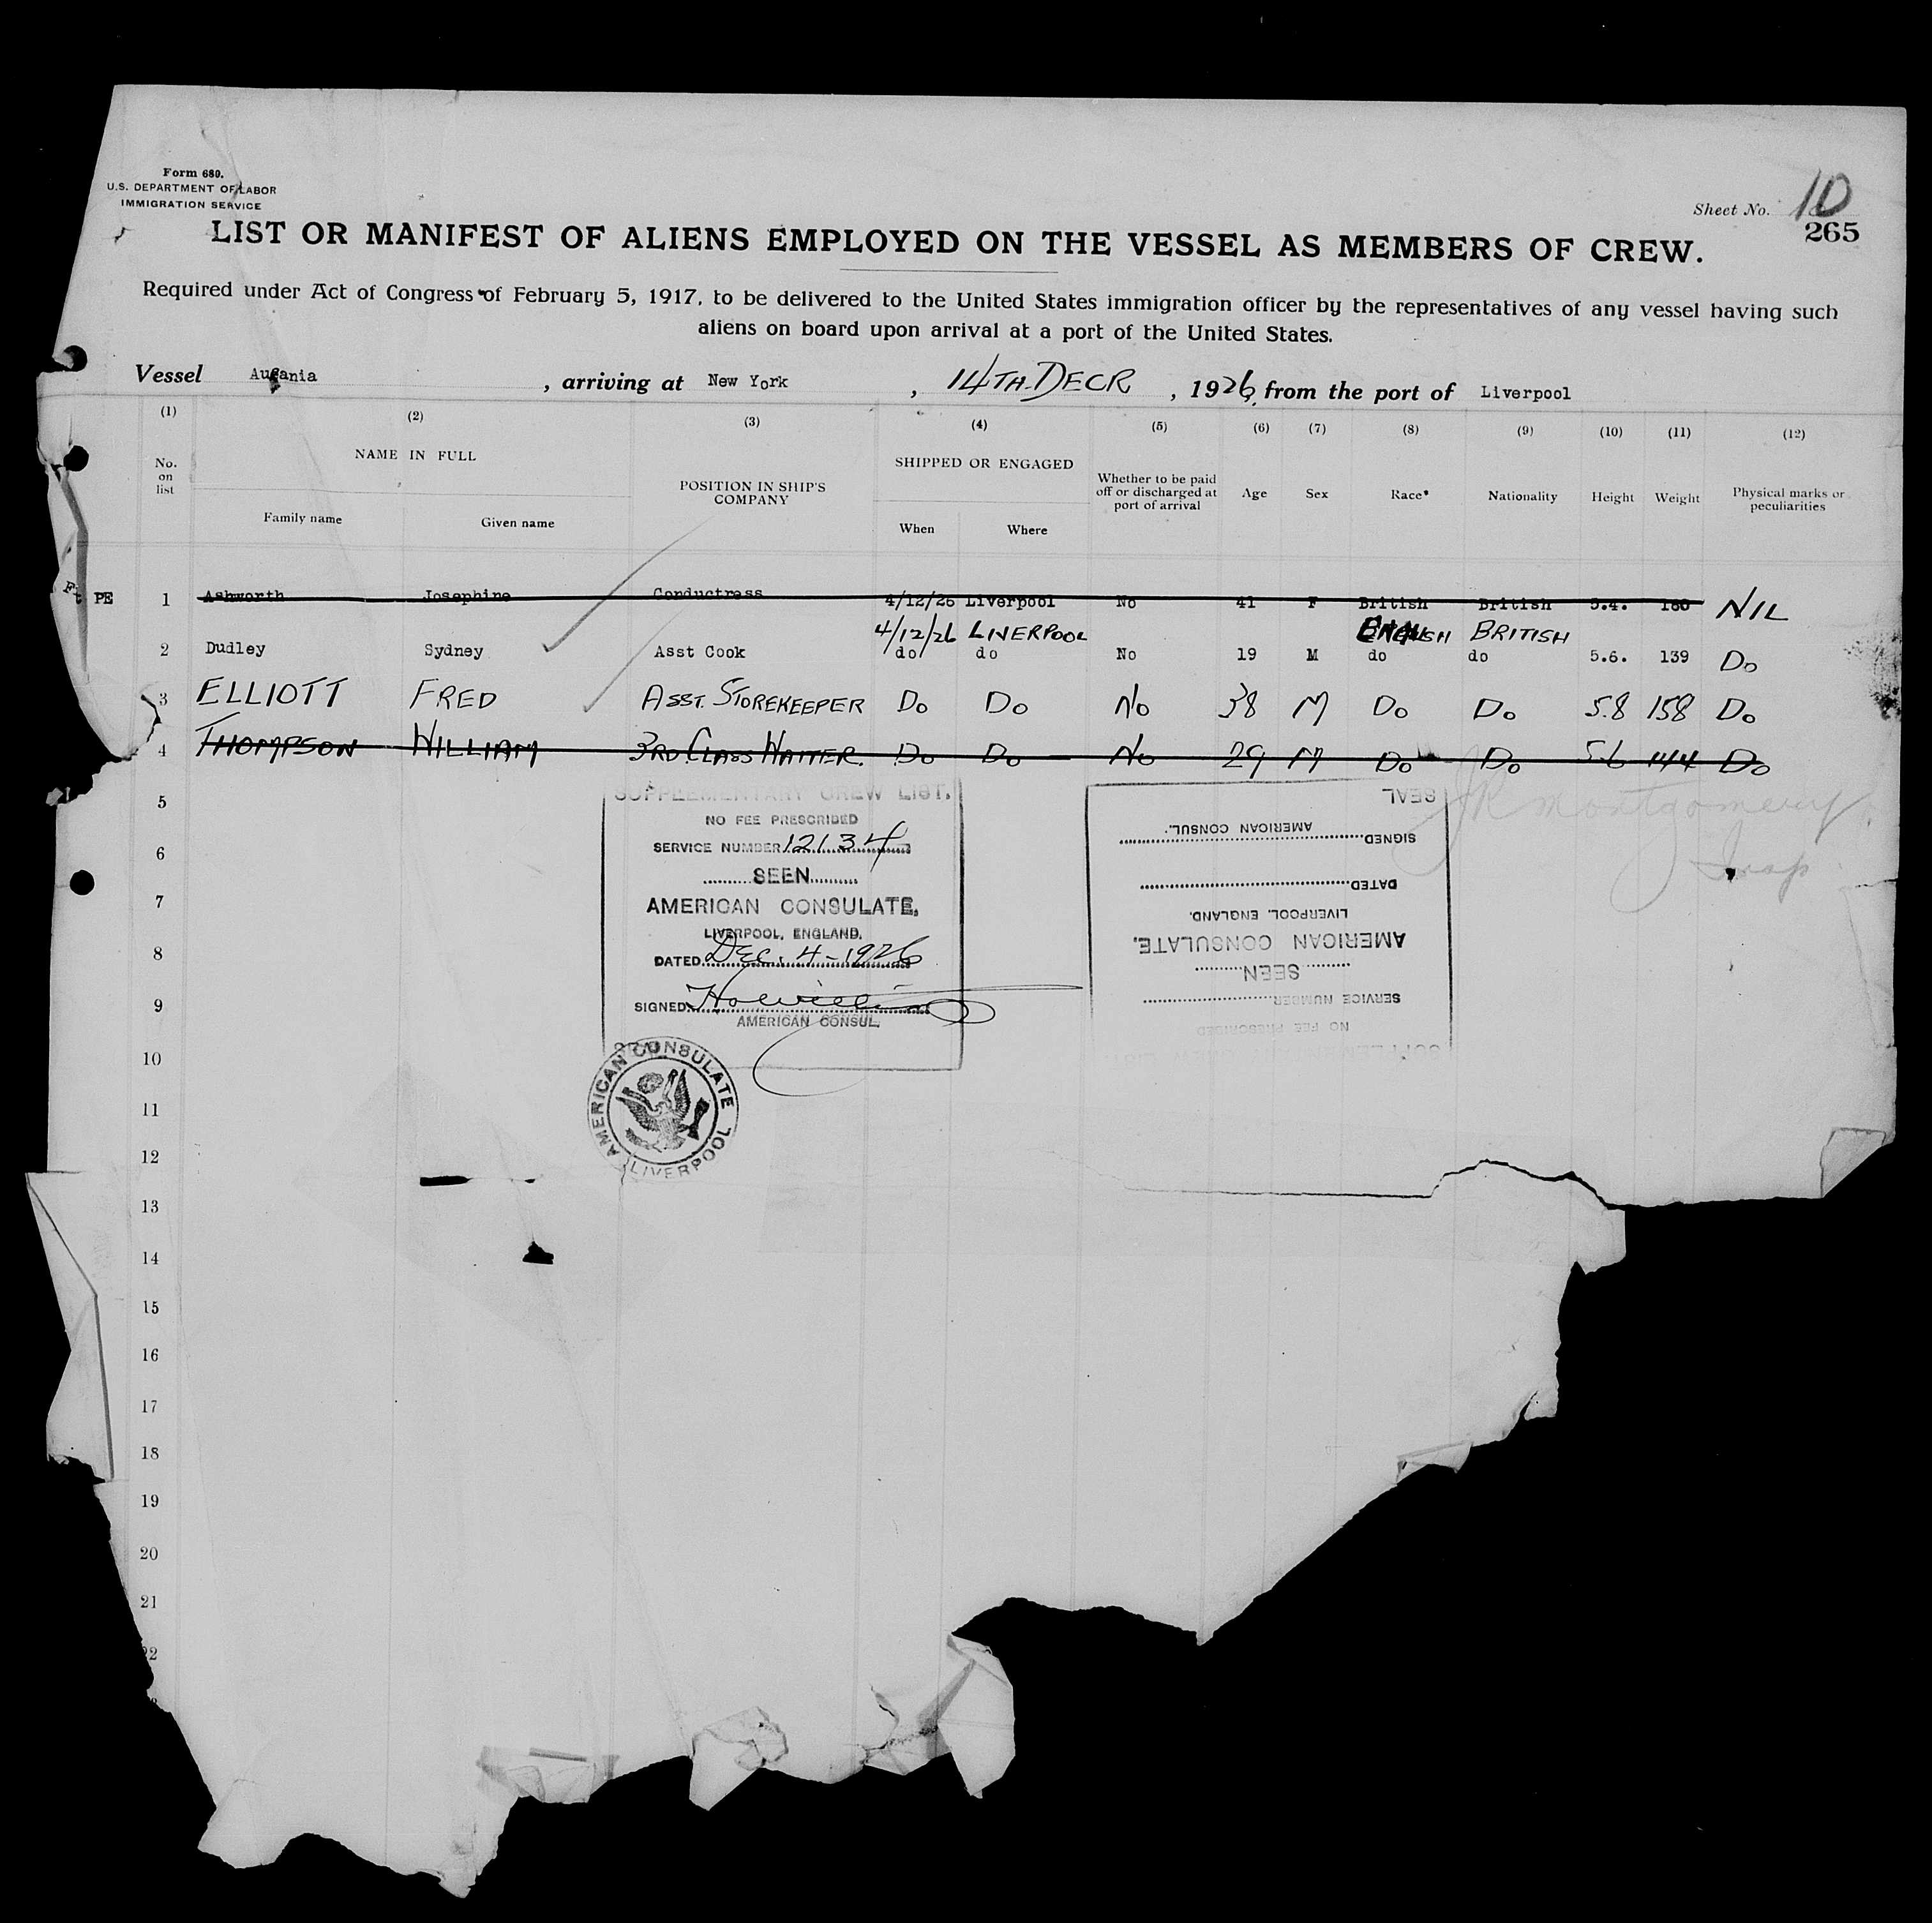 Form 680.
U.S. DEPARTMENT OF LABOR
IMMIGRATION SERVICE
Sheet No. 10
265
LIST OR MANIFEST OF ALIENS EMPLOYED ON THE VESSEL AS MEMBERS OF CREW.
Required under Act of Congress of February 5, 1917, to be delivered to the United States immigration officer by the representatives of any vessel having such
aliens on board upon arrival at a port of the United States.
Vessel Ausania, arriving at New York, 14TH DECR, 1926, from the port of Liverpool
(1) (2) (3) (4) (5) (6) (7) (8) (9) (10) (11) (12)
No. on list NAME IN FULL POSITION IN SHIP'S COMPANY SHIPPED OR ENGAGED Whether to be paid off or discharged at port of arrival Age Sex Race* Nationality Height Weight Physical marks or peculiarities
Family name Given name When Where
PE 1 Ashworth Josephine Conductress 4/12/26 Liverpool No 41 F British British 5.4. 180 NIL
4/12/26 LIVERPOOL ENGLISH BRITISH
2 Dudley Sydney Asst Cook do do No 19 M do do 5.6. 139 Do
3 ELLIOTT FRED ASST. STOREKEEPER Do Do No 38 M Do Do 5.8 158 Do
4 THOMPSON WILLIAM 3RD. CLASS WAITER. Do Do No 29 M Do Do 5.6 144 Do
5
6
7
8
9
10
11
12
13
14
15
16
17
18
19
20
21
22
SUPPLEMENTARY CREW LIST.
NO FEE PRESCRIBED
SERVICE NUMBER 12134
SEEN
AMERICAN CONSULATE,
LIVERPOOL, ENGLAND.
DATED Dec. 4 - 1926
SIGNED
AMERICAN CONSUL.
AMERICAN CONSULATE
LIVERPOOL
SUPPLEMENTARY CREW LIST.
NO FEE PRESCRIBED
SERVICE NUMBER
SEEN
AMERICAN CONSULATE,
LIVERPOOL, ENGLAND.
DATED
SIGNED
AMERICAN CONSUL.
SEAL
JR Montgomery
Insp